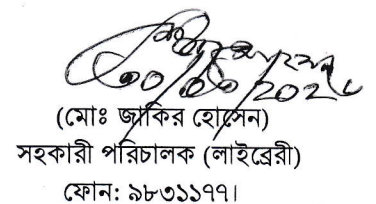 (মোঃ জাকির হোসেন)
সহকারী পরিচালক (লাইব্রেরী)
ফোন: ৯৮৩১১৭৭।